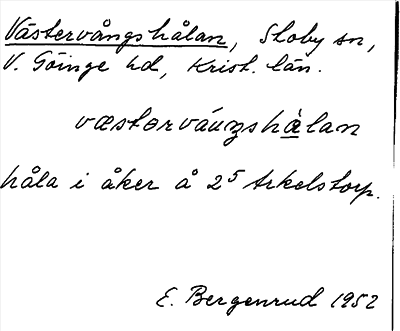 Västervångshålan, Stoby sn,
V. Göinge hd, Krist. län.
væstərváŋgshàlan
håla i åker å 2⁵ Arkelstorp.
E. Bergenrud 1952